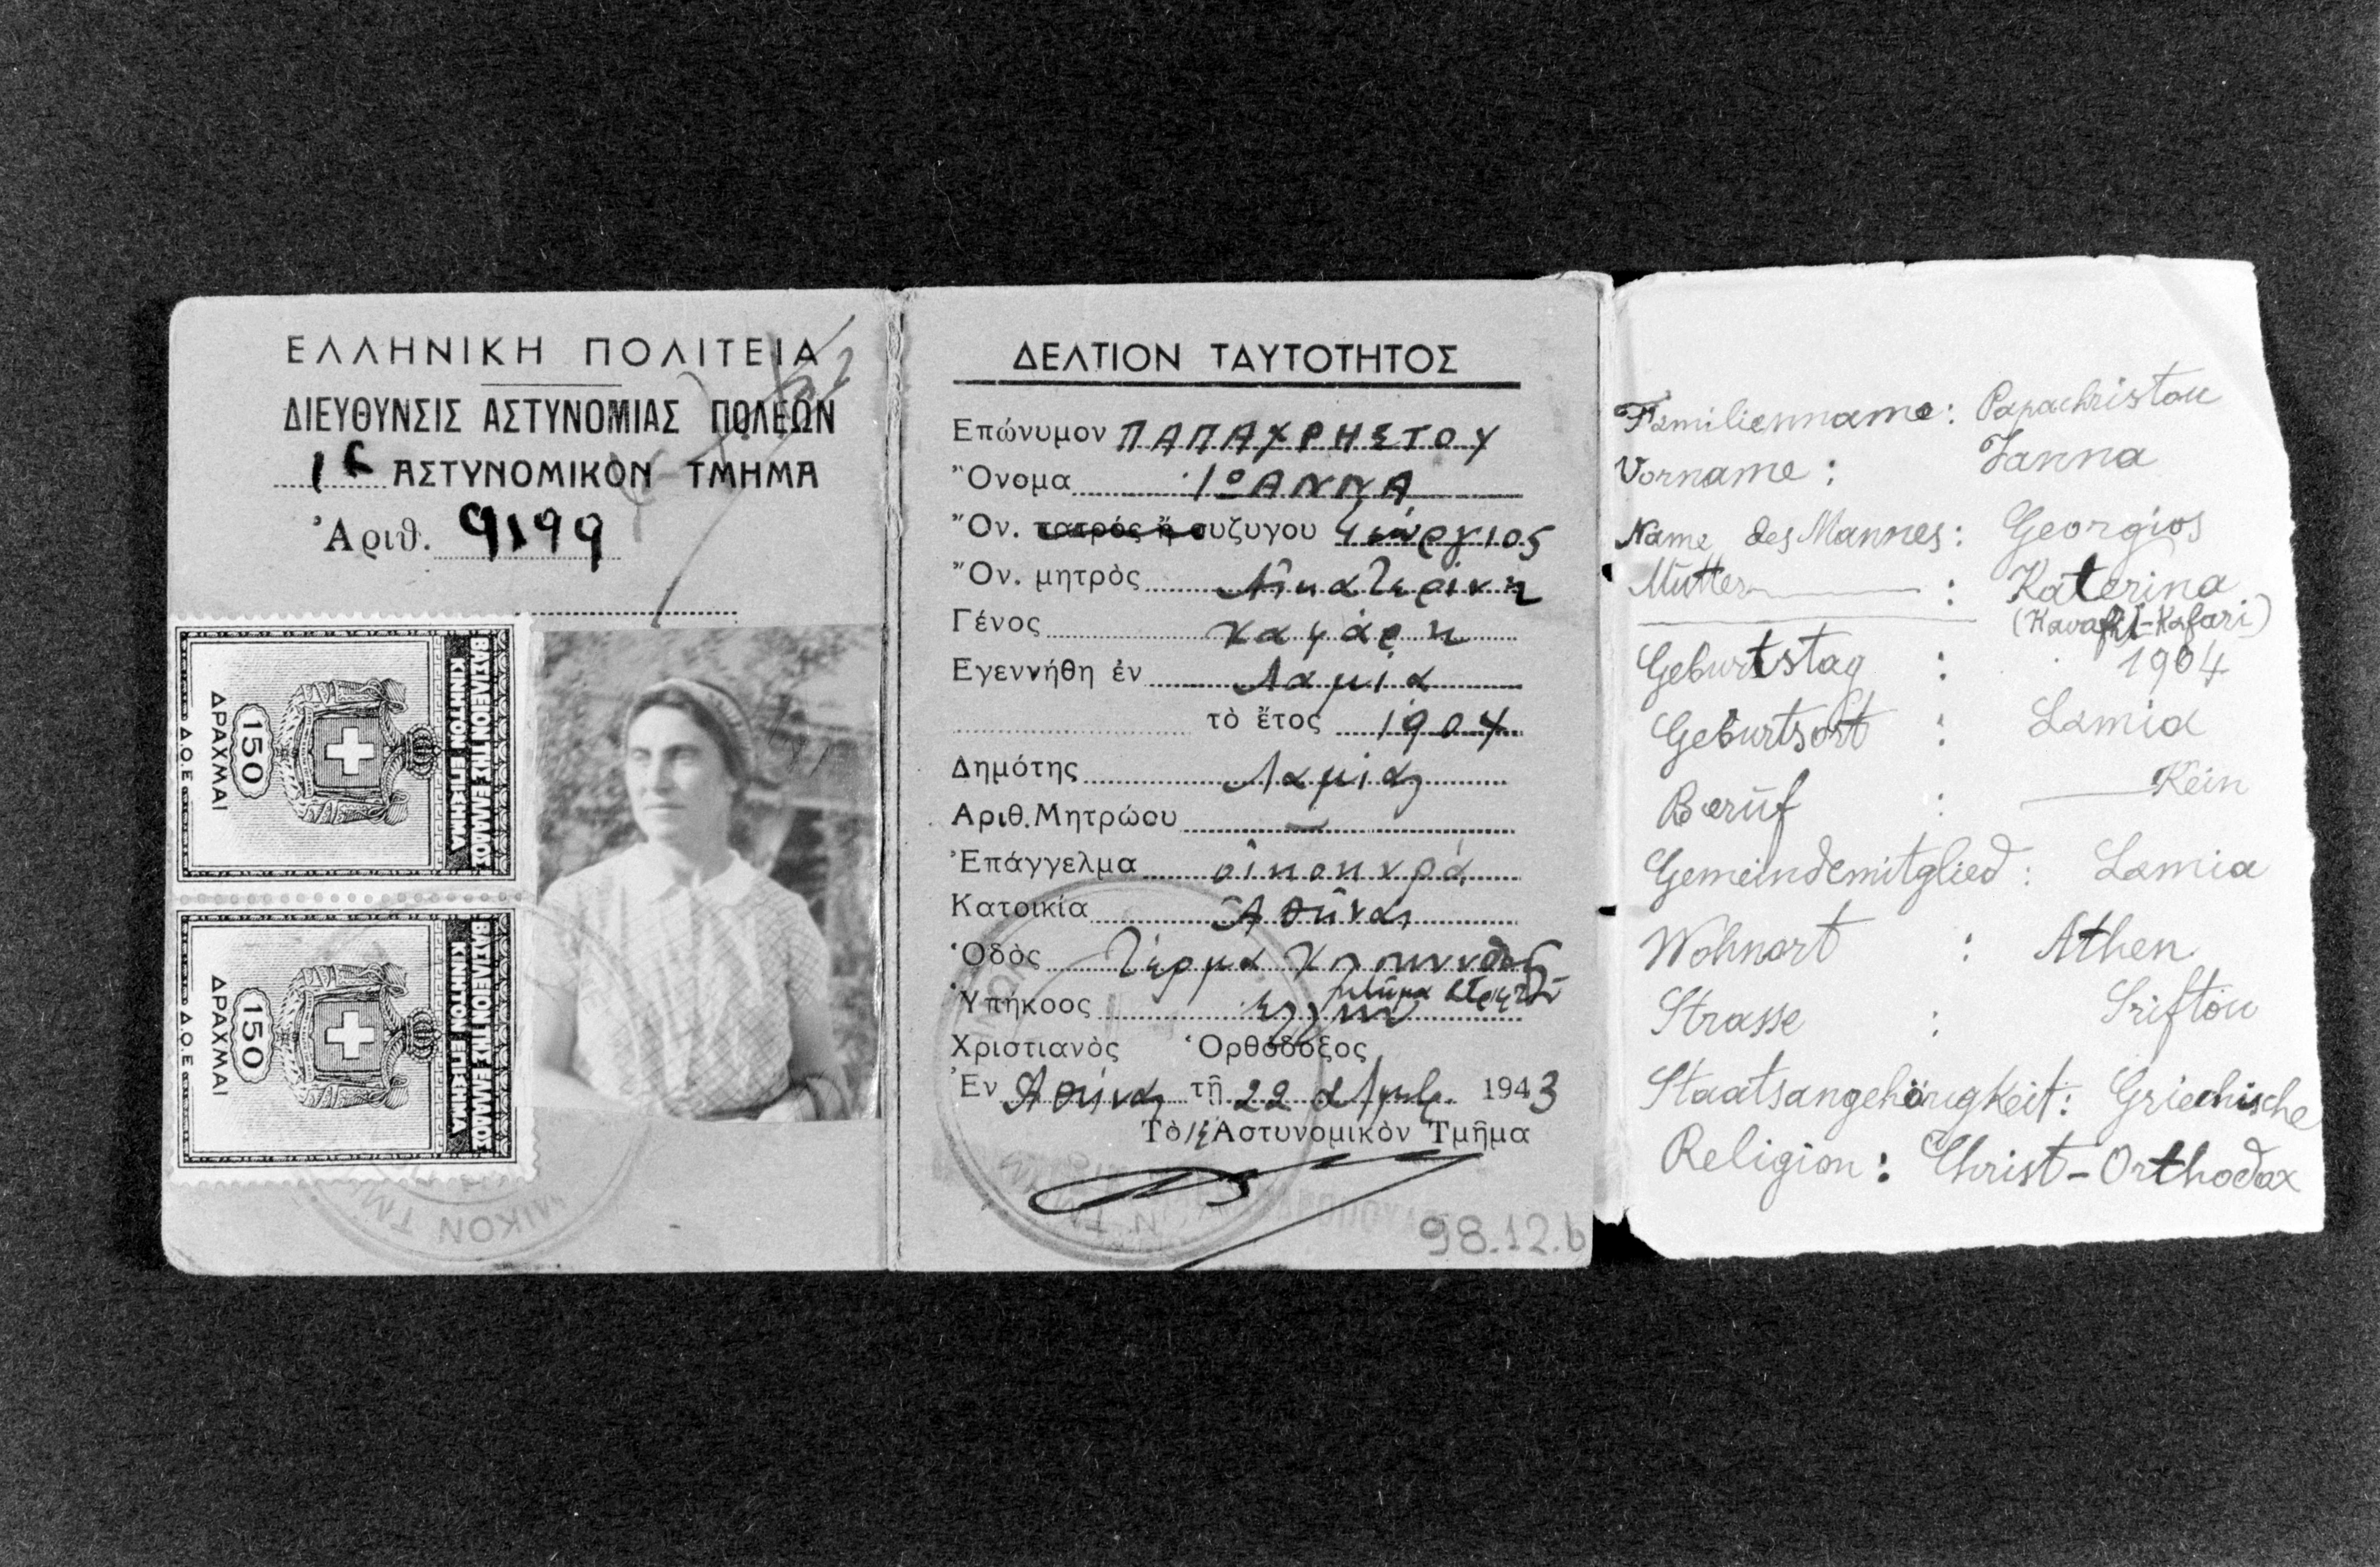 ΕΛΛΗΝΙΚΗ ΠΟΛΙΤΕΙΑ
ΔΙΕΥΘΥΝΣΙΣ ΑΣΤΥΝΟΜΙΑΣ ΠΟΛΕΩΝ
ΑΣΤΥΝΟΜΙΚΟΝ ΤΜΗΜΑ
Ἀριθ. 9199
ΒΑΣΙΛΕΙΟΝ ΤΗΣ ΕΛΛΑΔΟΣ
ΚΙΝΗΤΟΝ ΕΠΙΣΗΜΑ
150
ΔΡΑΧΜΑΙ
Δ.Ο.Ε.
ΒΑΣΙΛΕΙΟΝ ΤΗΣ ΕΛΛΑΔΟΣ
ΚΙΝΗΤΟΝ ΕΠΙΣΗΜΑ
150
ΔΡΑΧΜΑΙ
Δ.Ο.Ε.
ΔΕΛΤΙΟΝ ΤΑΥΤΟΤΗΤΟΣ
Επώνυμον ΠΑΠΑΧΡΗΣΤΟΥ
Ὄνομα ΙΟΑΝΝΑ
Ὄν. πατρός ἢ συζυγου Γεώργιος
Ὄν. μητρὸς Αἰκατερίνη
Γένος Καφάρη
Εγεννήθη ἐν Λαμία
τὸ ἔτος 1904
Δημότης Λαμίας
Αριθ. Μητρώου —
Ἐπάγγελμα οἰκοκυρά
Κατοικία Ἀθήναι
Ὁδὸς Τέρμα
Ὑπήκοος
Χριστιανὸς Ὀρθόδοξος
Ἐν Ἀθήναις τῇ 22 1943
Τὸ Ἀστυνομικὸν Τμῆμα
98.12.b
Familienname: Papachristou
Vorname: Janna
Name des Mannes: Georgios
Mutter : Katerina
Kafari)
Geburtstag : 1904
Geburtsort : Lamia
Beruf : Kein
Gemeindemitglied : Lamia
Wohnort : Athen
Strasse : Sriftou
Staatsangehörigkeit: Griechische
Religion: Christ-Orthodox